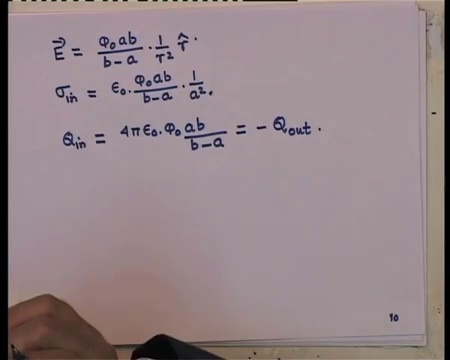 E⃗ = φ₀ab/(b-a) · 1/r² r̂.
σin = ϵ₀. φ₀ab/(b-a) · 1/a².
Qin = 4πϵ₀. φ₀ab/(b-a) = - Qout.
10